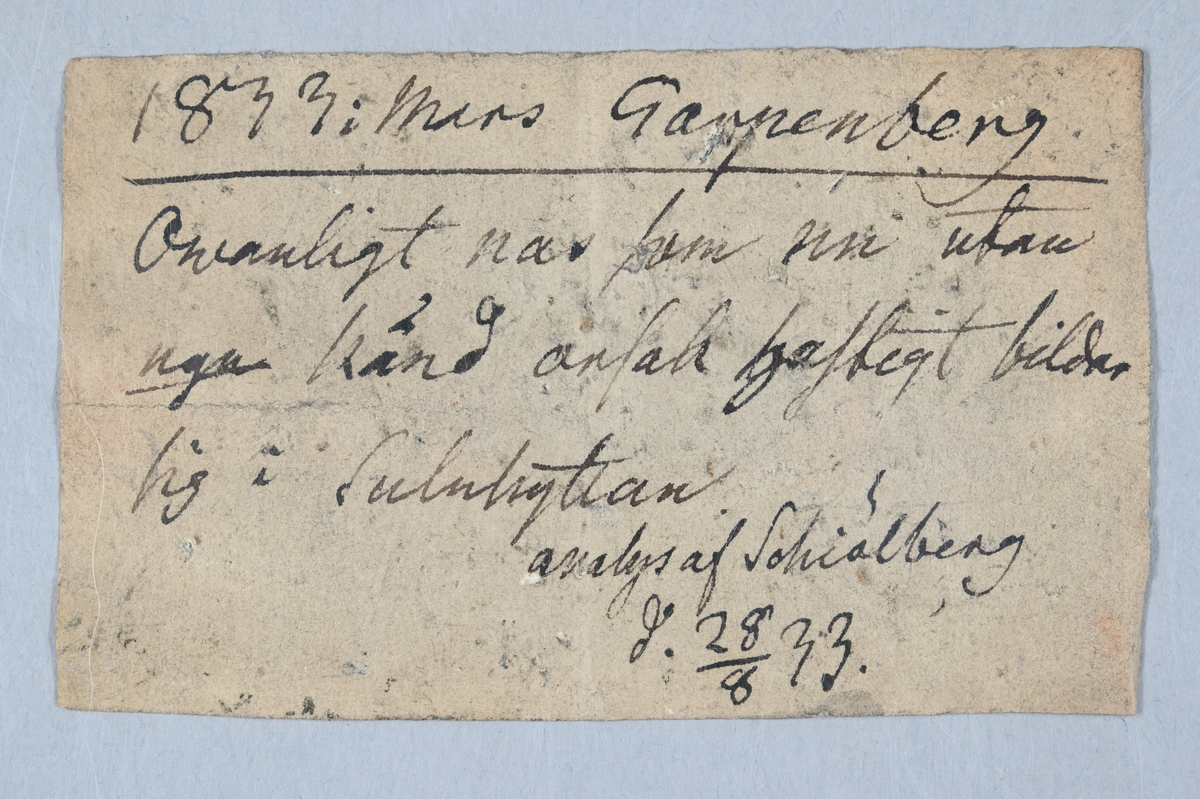 1833: Mars Garpenberg
Owanligt nas som nu utan
ngn känd orsak haftigt bildar
sig i Suluhyttan
analys af Schiólberg
d. 28/8 33.